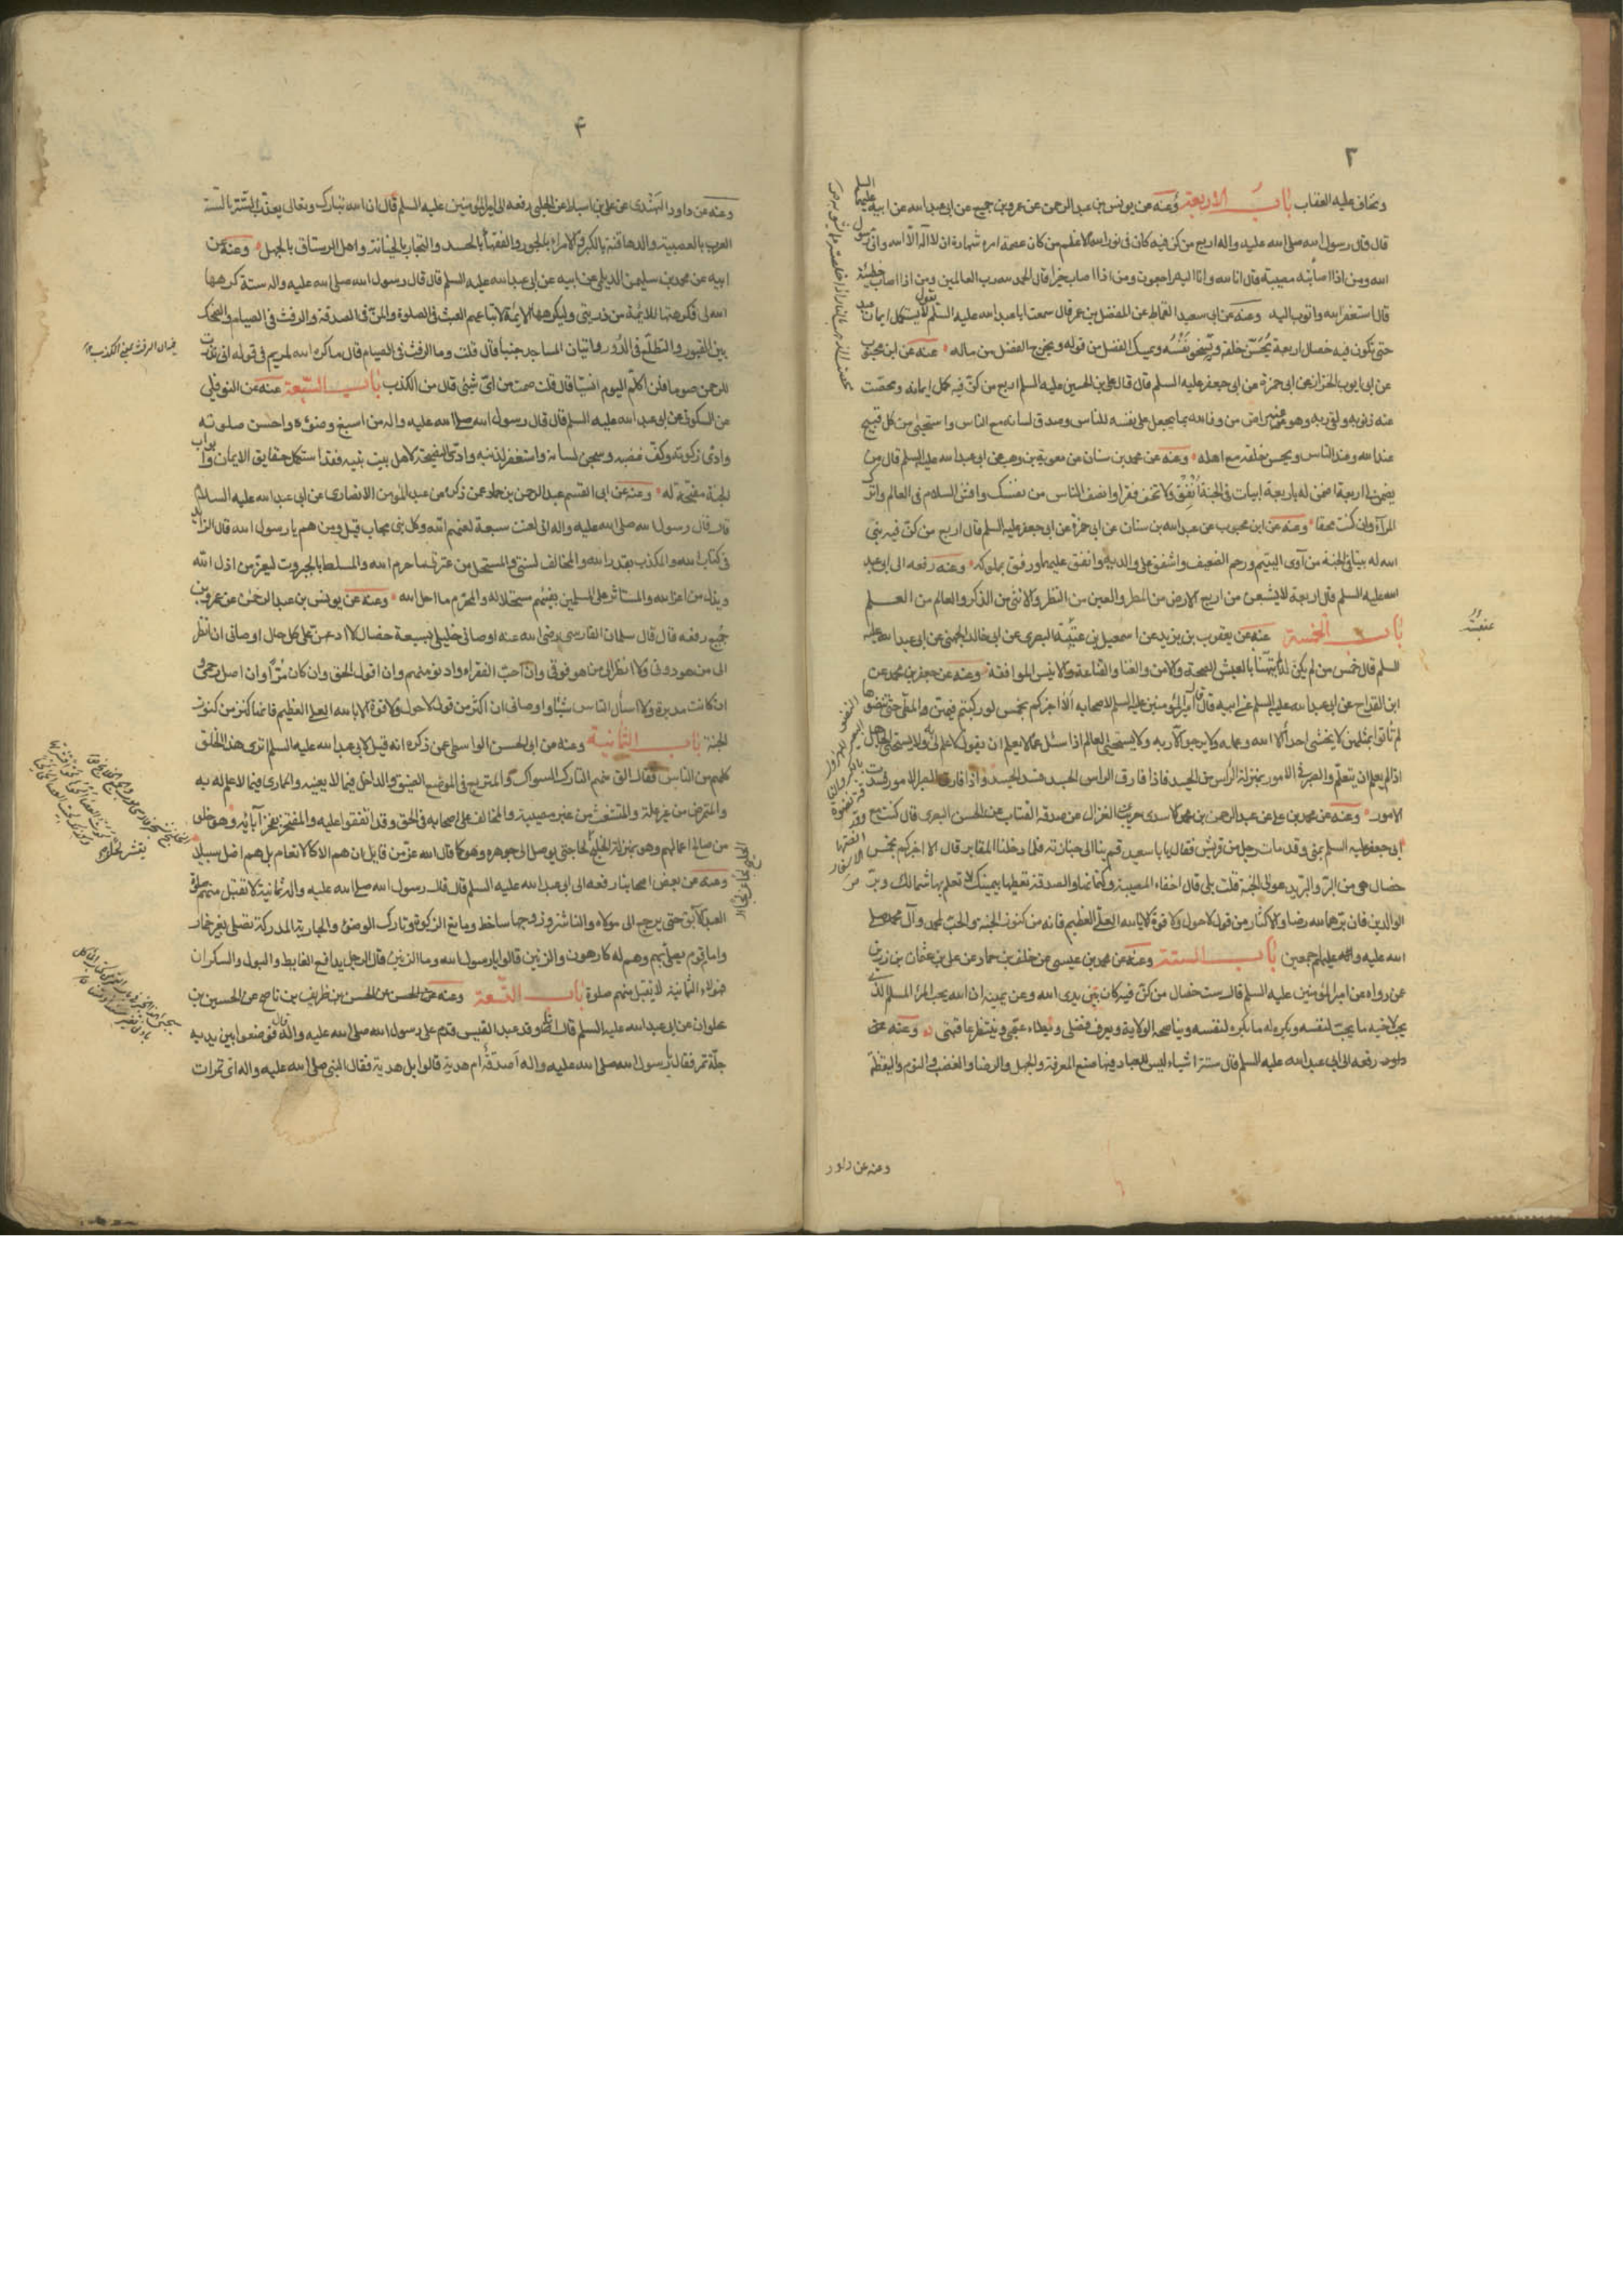 ٣
وتخاف عليه العقاب باب الاربعة وعنه عن يونس بن عبد الرحمن عن عمرو بن جميع عن ابي عبد الله عن ابيه عليهما السلم
قال قال رسول الله صلى الله عليه واله اربع من كن فيه كان في نور الله الاعظم من كان عصمة امره شهادة ان لا اله الا الله واني رسول
الله ومن اذا اصابته مصيبة قال انا لله وانا اليه راجعون ومن اذا اصاب خيرا قال الحمد لله رب العالمين ومن اذا اصاب خطيئة
قال استغفر الله واتوب اليه وعنه عن ابي سعيد القماط عن المفضل بن عمر قال سمعت ابا عبد الله عليه السلم يقول لا يستكمل ايمان عبد
حتى تكون فيه خصال اربعة يحسن خلقه ويسخي نفسه ويمسك الفضل من قوله ويخرج الفضل من ماله عنه عن ابن محبوب
عن ابي ايوب الخزاز عن ابي حمزة عن ابي جعفر عليه السلم قال قال علي بن الحسين عليه السلم اربع من كن فيه كمل ايمانه ومحصت
عنه ذنوبه ولقي ربه وهو عنه راض من وفا لله بما يجعل على نفسه للناس وصدق لسانه مع الناس واستحيى من كل قبيح
عند الله وعند الناس ويحسن خلقه مع اهله وعنه عن محمد بن سنان عن معوية بن وهب عن ابي عبد الله عليه السلم قال من
يضمن لي اربعة اضمن له باربعة ابيات في الجنة انفق ولا تخف فقرا وانصف الناس من نفسك وافش السلام في العالم واترك
المراء وان كنت محقا وعنه عن ابن محبوب عن عبد الله بن سنان عن ابي حمزة عن ابي جعفر عليه السلم قال اربع من كن فيه بنى
الله له بيتا في الجنة من آوى اليتيم ورحم الضعيف واشفق على والديه وانفق عليهما ورفق بمملوكه وعنه رفعه الى ابي عبد
الله عليه السلم قال اربعة لا يشبعن من اربع الارض من المطر والعين من النظر والانثى من الذكر والعالم من العلم
باب الخمسة عنه عن يعقوب بن يزيد عن اسمعيل بن عتيبة البصري عن ابي خالد الجهني عن ابي عبد الله عليه
السلم قال خمس من لم يكن له لم يتهنا بالعيش الصحة والامن والغنا والقناعة والانيس الموافقة وعنه عن جعفر بن محمد عن
ابن القداح عن ابي عبد الله عليه السلم عن ابيه قال قال امير المؤمنين عليه السلم لاصحابه الا اخبركم بخمس لو ركبتم فيهن المطي حتى تنضوها
لم تاتوا بمثلهن لا يخشى احد الا الله وعمله ولا يرجو الا ربه ولا يستحيي العالم اذا سئل عما لا يعلم ان يقول لا علم لي به ولا يستحيي الجاهل
اذا لم يعلم ان يتعلم والصبر في الامور بمنزلة الراس من الجسد فاذا فارق الراس الجسد فسد الجسد واذا فارق الصبر الامور فسدت
الامور وعنه عن محمد بن علي عن عبد الرحمن بن محمد الاسدي عن حريث الغزال عن صدقة القتاب عن الحسن البصري قال كنت مع
ابي جعفر عليه السلم بمنى وقد مات رجل من قريش فقال يابا سعيد قم بنا الى جنازته فلما دخلنا المقابر قال الا اخبركم بخمس
خصال هي من البر والبر يدعو الى الجنة قلت بلى قال اخفاء المصيبة وكتمانها والصدقة تعطيها بيمينك لا تعلم بها شمالك وبر
الوالدين فان برهما لله رضا والاكثار من قول لا حول ولا قوة الا بالله العلي العظيم فانه من كنوز الجنة والحب لمحمد وآل محمد صلى
الله عليه وآله عليهم اجمعين باب الستة وعنه عن محمد بن عيسى عن خلف بن حماد عن علي بن عثمان بن رزين
عن رواه عن امير المؤمنين عليه السلم قال ست خصال من كن فيه كان بين يدى الله وعن يمينه ان الله يحب المرء المسلم الذي
يحب لاخيه ما يحب لنفسه ويكره له ما يكره لنفسه ويناصحه الولاية ويعرف فضلي ويطاء عقبي وينتظر عاقبتي وعنه عمن
داود رفعه الى ابي عبد الله عليه السلم قال ستة اشياء ليس للعباد فيها صنع المعرفة والجهل والرضا والغضب والنوم واليقظة
وعنه عن داود
۴
وعنه عن داود النهدي عن علي بن اسباط عن الحلبي رفعه الى امير المؤمنين عليه السلم قال ان الله تبارك وتعالى يعذب الستة بالستة
العرب بالعصبية والدهاقنة بالكبر والامراء بالجور والفقهاء بالحسد والتجار بالخيانة واهل الرستاق بالجهل وعنه عن
ابيه عن محمد بن سليمن الديلمي عن ابيه عن ابي عبد الله عليه السلم قال قال رسول الله صلى الله عليه واله ستة كرهها
الله لي فكرهتها للائمة من ذريتي وليكرهها الائمة لاتباعهم العبث في الصلوة والمن في الصدقة والرفث في الصيام والضحك
بين القبور والتطلع في الدور واتيان المساجد جنبا قال قلت وما الرفث في الصيام قال ما كره الله لمريم في قوله اني نذرت
للرحمن صوما فلن اكلم اليوم انسيا قال قلت صمت من اي شيئ قال من الكذب باب السبعة عنه عن النوفلي
عن السكوني عن ابي عبد الله عليه السلم قال قال رسول الله صلى الله عليه واله من اسبغ وضوءه واحسن صلوته
وادى زكوته وكف غضبه وسجن لسانه واستغفر لذنبه وادى النصيحة لاهل بيت نبيه فقد استكمل حقايق الايمان وابواب
الجنة مفتحة له وعنه عن ابي القسم عبد الرحمن بن حماد عن ذكره عن عبد المؤمن الانصاري عن ابي عبد الله عليه السلام
قال قال رسول الله صلى الله عليه واله اني لعنت سبعة لعنهم الله وكل نبي مجاب قيل ومن هم يا رسول الله قال الزايد
في كتاب الله والمكذب بقدر الله والمخالف لسنتي والمستحل من عترتي ما حرم الله والمسلط بالجبروت ليعز من اذل الله
ويذل من اعز الله والمستاثر على المسلمين بفيئهم مستحلا له والمحرم ما احل الله وعنه عن يونس بن عبد الرحمن عن عمرو بن
جميع رفعه قال قال سلمان الفارسي رضي الله عنه اوصاني خليلي بسبعة خصال لا ادعهن على كل حال اوصاني ان انظر
الى من هو دوني ولا انظر الى من هو فوقي وان احب الفقراء وادنو منهم وان اقول الحق وان كان مرا وان اصل رحمي و
ان كانت مدبرة ولا اسأل الناس شيئا واوصاني ان اكثر من قول لا حول ولا قوة الا بالله العلي العظيم فانها كنز من كنوز
الجنة باب الثمانية وعنه عن ابي الحسن الواسطي عن ذكره انه قيل لابي عبد الله عليه السلم اترى هذا الخلق
كلهم من الناس فقال الق منهم التارك السواك والمتربع في الموضع الضيق والداخل فيما لا يعنيه والمماري فيما لا علم له به
والمتمرض من غير علة والمتشعث من غير مصيبة والمخالف على اصحابه في الحق وقد اتفقوا عليه والمفتخر بفخر آبائه وهو خلو
من صالح اعمالهم وهو بمنزلة الخلنج يقشر لحا حتى يوصل الى جوهره وهو كما قال الله عز من قايل ان هم الا كالانعام بل هم اضل سبيلا
وعنه عن بعض اصحابنا رفعه الى ابي عبد الله عليه السلم قال قال رسول الله صلى الله عليه واله ثمانية لا تقبل منهم صلوة
العبد الآبق حتى يرجع الى مولاه والناشز وزوجها ساخط ومانع الزكوة وتارك الوضوء والجارية المدركة تصلي بغير خمار
وامام قوم يصلي بهم وهم له كارهون والزنين قالوا يا رسول الله وما الزنين قال الرجل يدافع الغايط والبول والسكران
فهولاء الثمانية لا يقبل منهم صلوة باب التسعة وعنه عن الحسن بن ظريف بن ناصح عن الحسين بن
علوان عن ابي عبد الله عليه السلم قال وفد عبد القيس قدم على رسول الله صلى الله عليه واله قال فوضعوا بين يديه
جلة تمر فقال رسول الله صلى الله عليه واله اصدقة ام هدية قالوا بل هدية فقال النبي صلى الله عليه واله اي تمرات